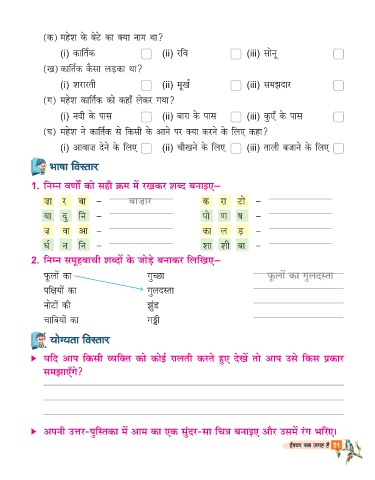 (क) महेश के बेटे का क्या नाम था?
(i) कार्तिक (ii) रवि (iii) सोनू
(ख) कार्तिक कैसा लड़का था?
(i) शरारती (ii) मूर्ख (iii) समझदार
(ग) महेश कार्तिक को कहाँ लेकर गया?
(i) नदी के पास (ii) बाग के पास (iii) कुएँ के पास
(घ) महेश ने कार्तिक से किसी के आने पर क्या करने के लिए कहा?
(i) आवाज़ देने के लिए (ii) चीखने के लिए (iii) ताली बजाने के लिए
भाषा विस्तार
1. निम्न वर्णों को सही क्रम में रखकर शब्द बनाइए–
ज़ा र बा – बाज़ार क रा टो –
या दु नि – पो ण ष –
ज़ वा आ – का ल ड़ –
र्ध न नि – शा शी बा –
2. निम्न समूहवाची शब्दों के जोड़े बनाकर लिखिए–
फूलों का गुच्छा फूलों का गुलदस्ता
पक्षियों का गुलदस्ता
नोटों की झुंड
चाबियों का गड्डी
योग्यता विस्तार
यदि आप किसी व्यक्ति को कोई ग़लती करते हुए देखें तो आप उसे किस प्रकार
समझाएँगे?
अपनी उत्तर-पुस्तिका में आम का एक सुंदर-सा चित्र बनाइए और उसमें रंग भरिए।
ईश्वर सब जगह है 51